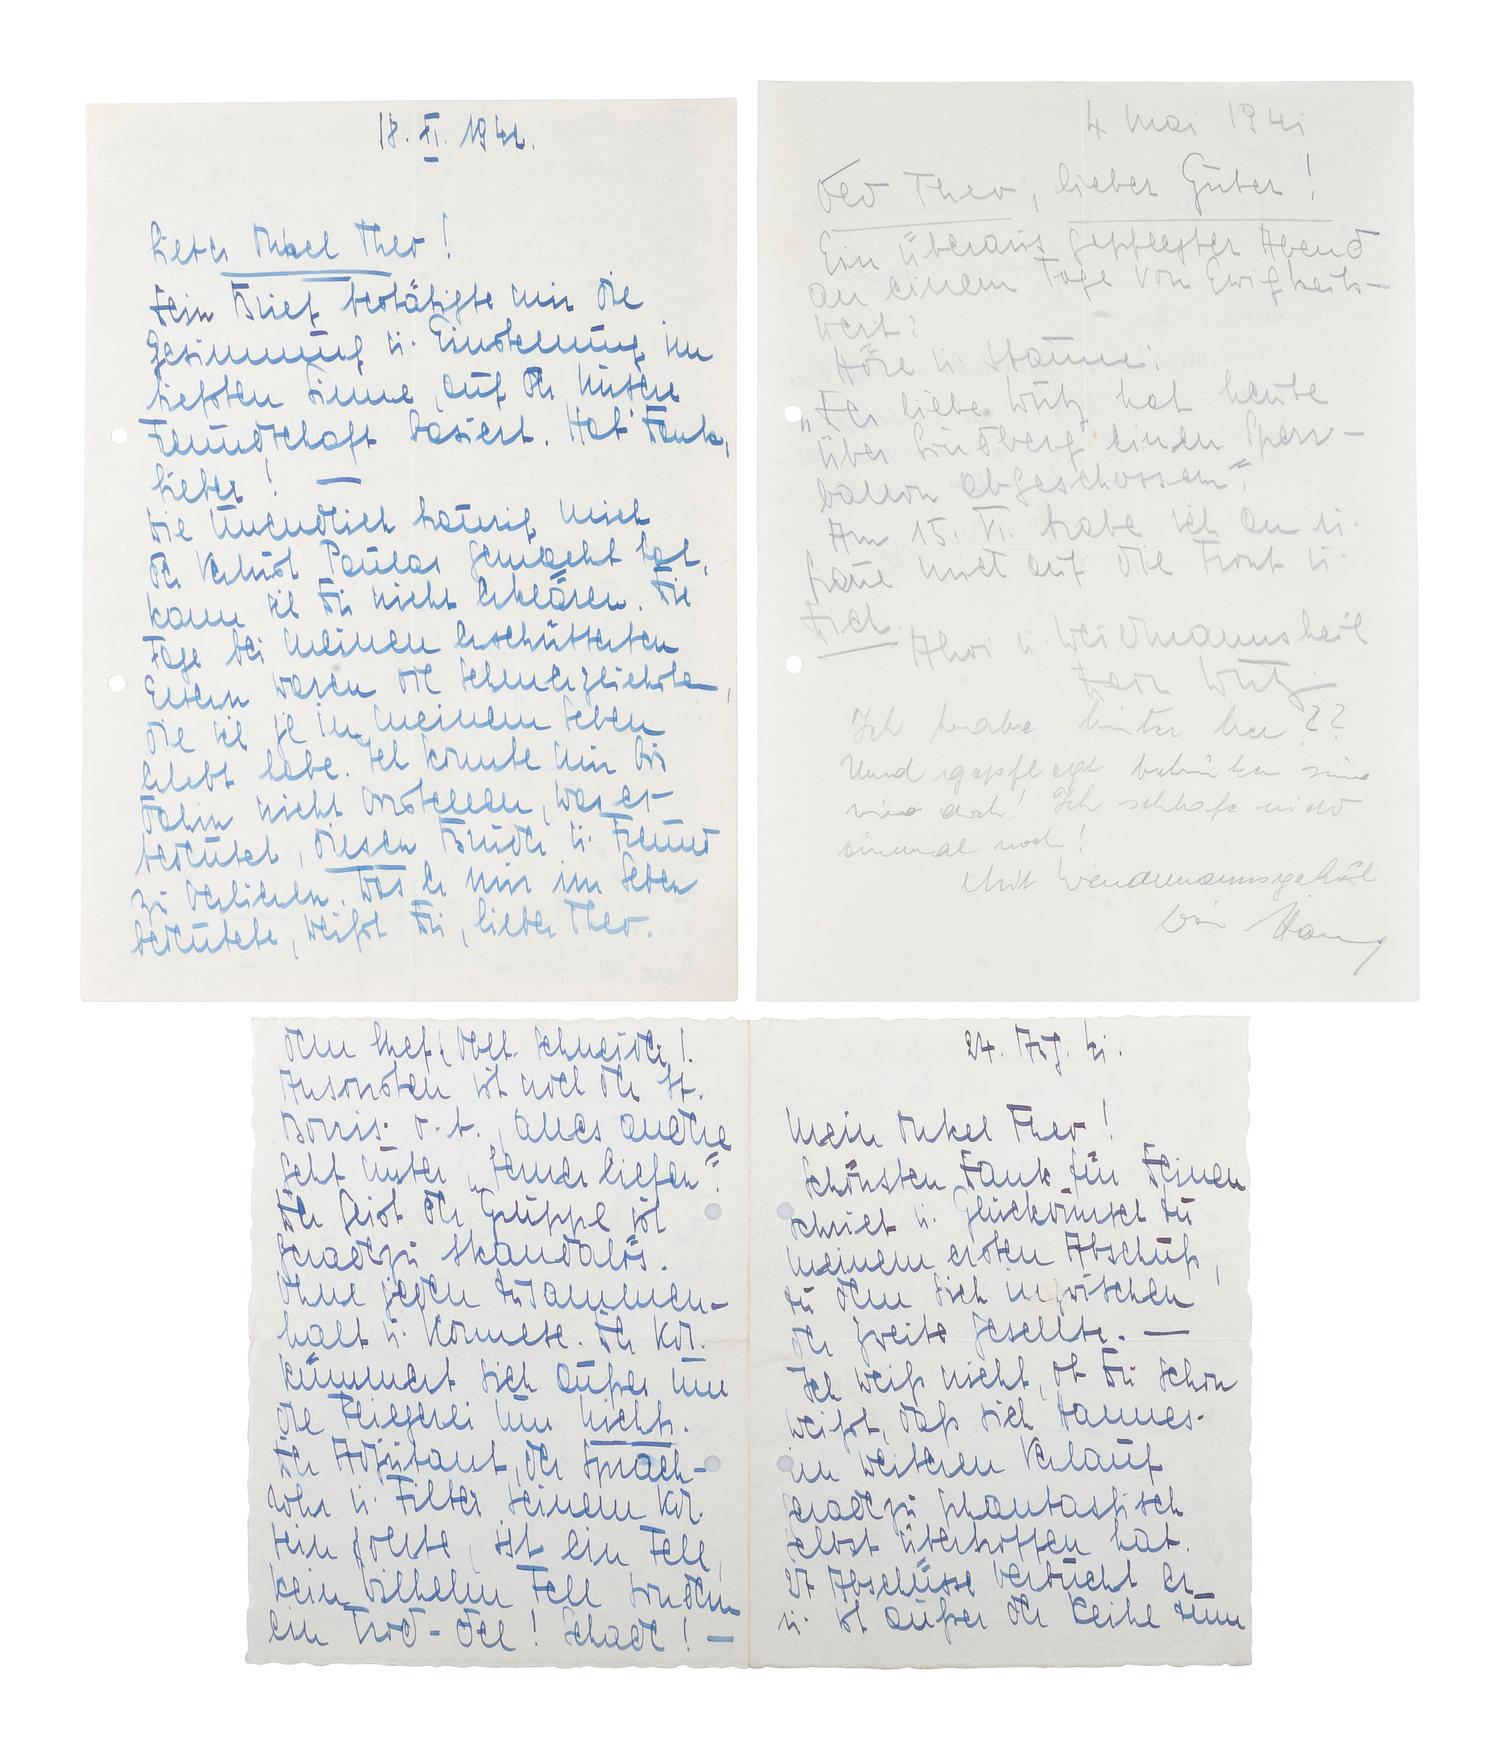 18. XI. 1941.
Lieber Onkel Theo!
Dein Brief bestätigte mir die
Gesinnung u. Einstellung im
tiefsten Sinne, auf der unsere
Freundschaft basiert. Hab' Dank,
Lieber! —
Wie unendlich traurig mich
der Verlust Paulas gemacht hat,
kann ich Dir nicht erklären. Die
Tage bei meinen erschütterten
Eltern waren die schmerzlichsten,
die ich je in meinem Leben
erlebt habe. Ich konnte mir bis
dahin nicht vorstellen, was es
bedeutet, diesen Bruder u. Freund
zu verlieren. Was er mir im Leben
bedeutete, weißt Du, lieber Theo.
4. Mai 1941
Theo, lieber Guter!
Ein überaus gepflegter Abend
an einem Tage von Ewigkeits-
wert:
Höre u. staune:
"Der liebe Wutz hat heute
über einen Sperr-
ballon abgeschossen".
Am 15. VI. habe ich an u.
freue mich auf die Front u.
Dich.
Ahoi u. Weidmannsheil
Dein Wutz
Ich habe hinter her??
Und gepflegt sind
wir doch! Ich schlafe nicht
einmal noch!
Mit
Dein
dem Chef, Oblt. Schneider!
Ansonsten ist noch der St.
Borris o.k., alles andere
geht unter "ferner liefen".
Der Geist der Gruppe ist
geradezu skandalös.
Ohne jeden Zusammen-
halt u. Kornese. Der Kdr.
kümmert sich außer um
die Fliegerei um nichts.
Der Adjutant, der Sprach-
rohr u. Filter seinem Kdr.
sein sollte, ist ein Tell,
kein Wilhelm Tell sondern
ein Trod-del! Schade! —
24. Aug. 41.
Mein Onkel Theo!
Schönsten Dank für Deinen
Schrieb u. Glückwunsch zu
meinem ersten Abschuß,
zu dem sich inzwischen
der zweite gesellte. —
Ich weiß nicht, ob Du schon
weißt, daß sich Hannes
im weiteren Verlauf
geradezu phantastisch
selbst übertroffen hat.
27 Abschüsse verbucht er
u. ist außer der Reihe zum